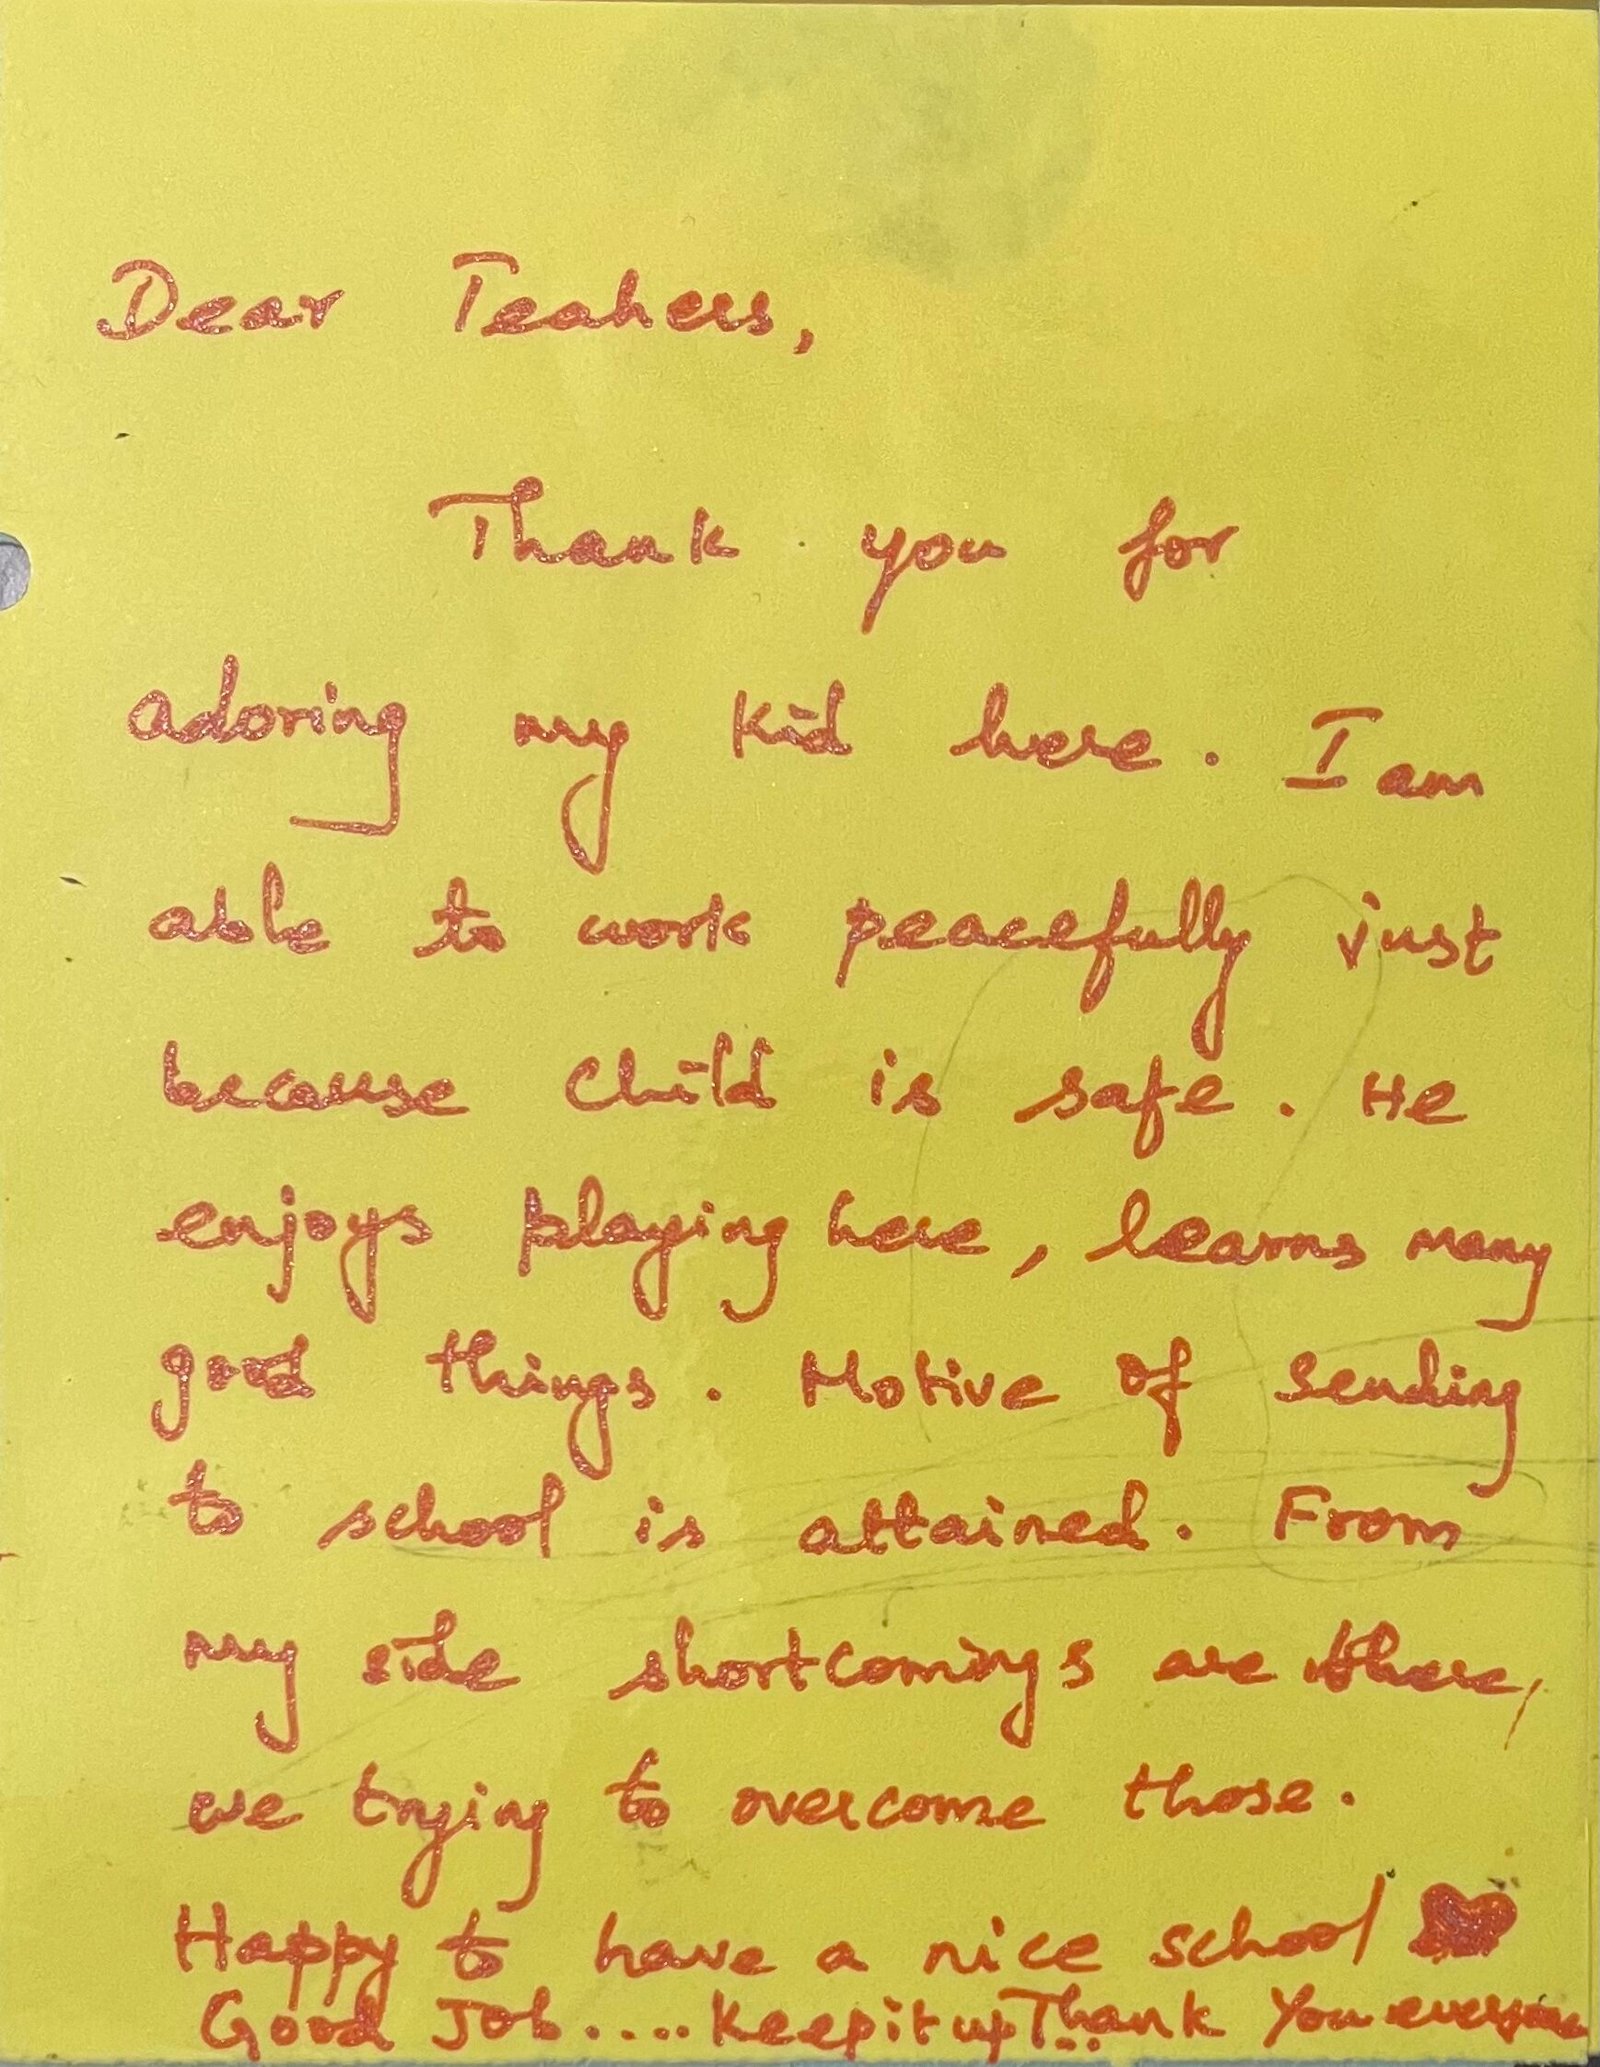 Dear Teahers,
Thank you for
adoring my kid here. I am
able to work peacefully just
because child is safe. He
enjoys playing here, learns many
good things. Motive of sending
to school is attained. From
my side shortcomings are there,
we trying to overcome those.
Happy to have a nice school
Good Job..... Keep it up... Thank You everyone